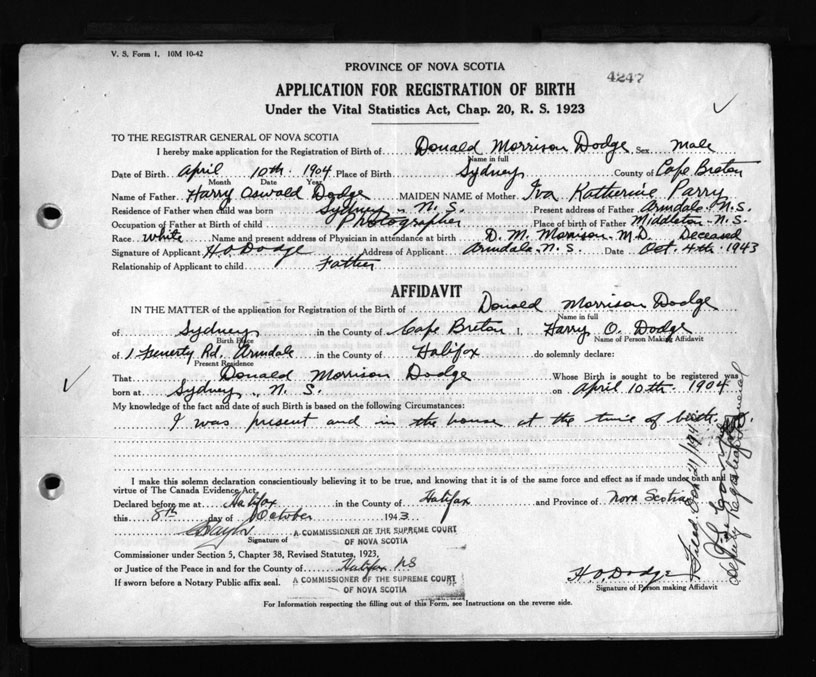 V. S. Form 1, 10M 10-42
PROVINCE OF NOVA SCOTIA
4247
APPLICATION FOR REGISTRATION OF BIRTH
Under the Vital Statistics Act, Chap. 20, R. S. 1923
TO THE REGISTRAR GENERAL OF NOVA SCOTIA
I hereby make application for the Registration of Birth of Donald Morrison Dodge Sex male
Name in full
Date of Birth April 10th. 1904 Place of Birth Sydney County of Cape Breton
Month Date Year
Name of Father Harry Oswald Dodge MAIDEN NAME of Mother Iva Katherine Parry
Residence of Father when child was born Sydney - N. S. Present address of Father Armdale. N. S.
Occupation of Father at Birth of child Photographer Place of birth of Father Middleton - N. S.
Race white Name and present address of Physician in attendance at birth D. M. Morrison - M. D. Deceased
Signature of Applicant H. O. Dodge Address of Applicant Armdale - N. S. Date Oct. 4th. 1943
Relationship of Applicant to child Father
AFFIDAVIT
IN THE MATTER of the application for Registration of the Birth of Donald Morrison Dodge
Name in full
of Sydney in the County of Cape Breton I, Harry O. Dodge
Birth Place Name of Person Making Affidavit
of 1 Rd. Armdale in the County of Halifax do solemnly declare:
Present Residence
That Donald Morrison Dodge Whose Birth is sought to be registered was
born at Sydney, N. S. on April 10th. 1904
My knowledge of the fact and date of such Birth is based on the following Circumstances:
I was present and in the house at the time of birth.
I make this solemn declaration conscientiously believing it to be true, and knowing that it is of the same force and effect as if made under oath and by
virtue of The Canada Evidence Act.
Declared before me at Halifax in the County of Halifax and Province of Nova Scotia
this 8th day of October 1943
Signature of A COMMISSIONER OF THE SUPREME COURT
OF NOVA SCOTIA
Commissioner under Section 5, Chapter 38, Revised Statutes, 1923,
or Justice of the Peace in and for the County of Halifax NS
If sworn before a Notary Public affix seal. A COMMISSIONER OF THE SUPREME COURT
OF NOVA SCOTIA
H. O. Dodge
Signature of Person making Affidavit
For Information respecting the filling out of this Form, see Instructions on the reverse side.
Deputy Registrar General